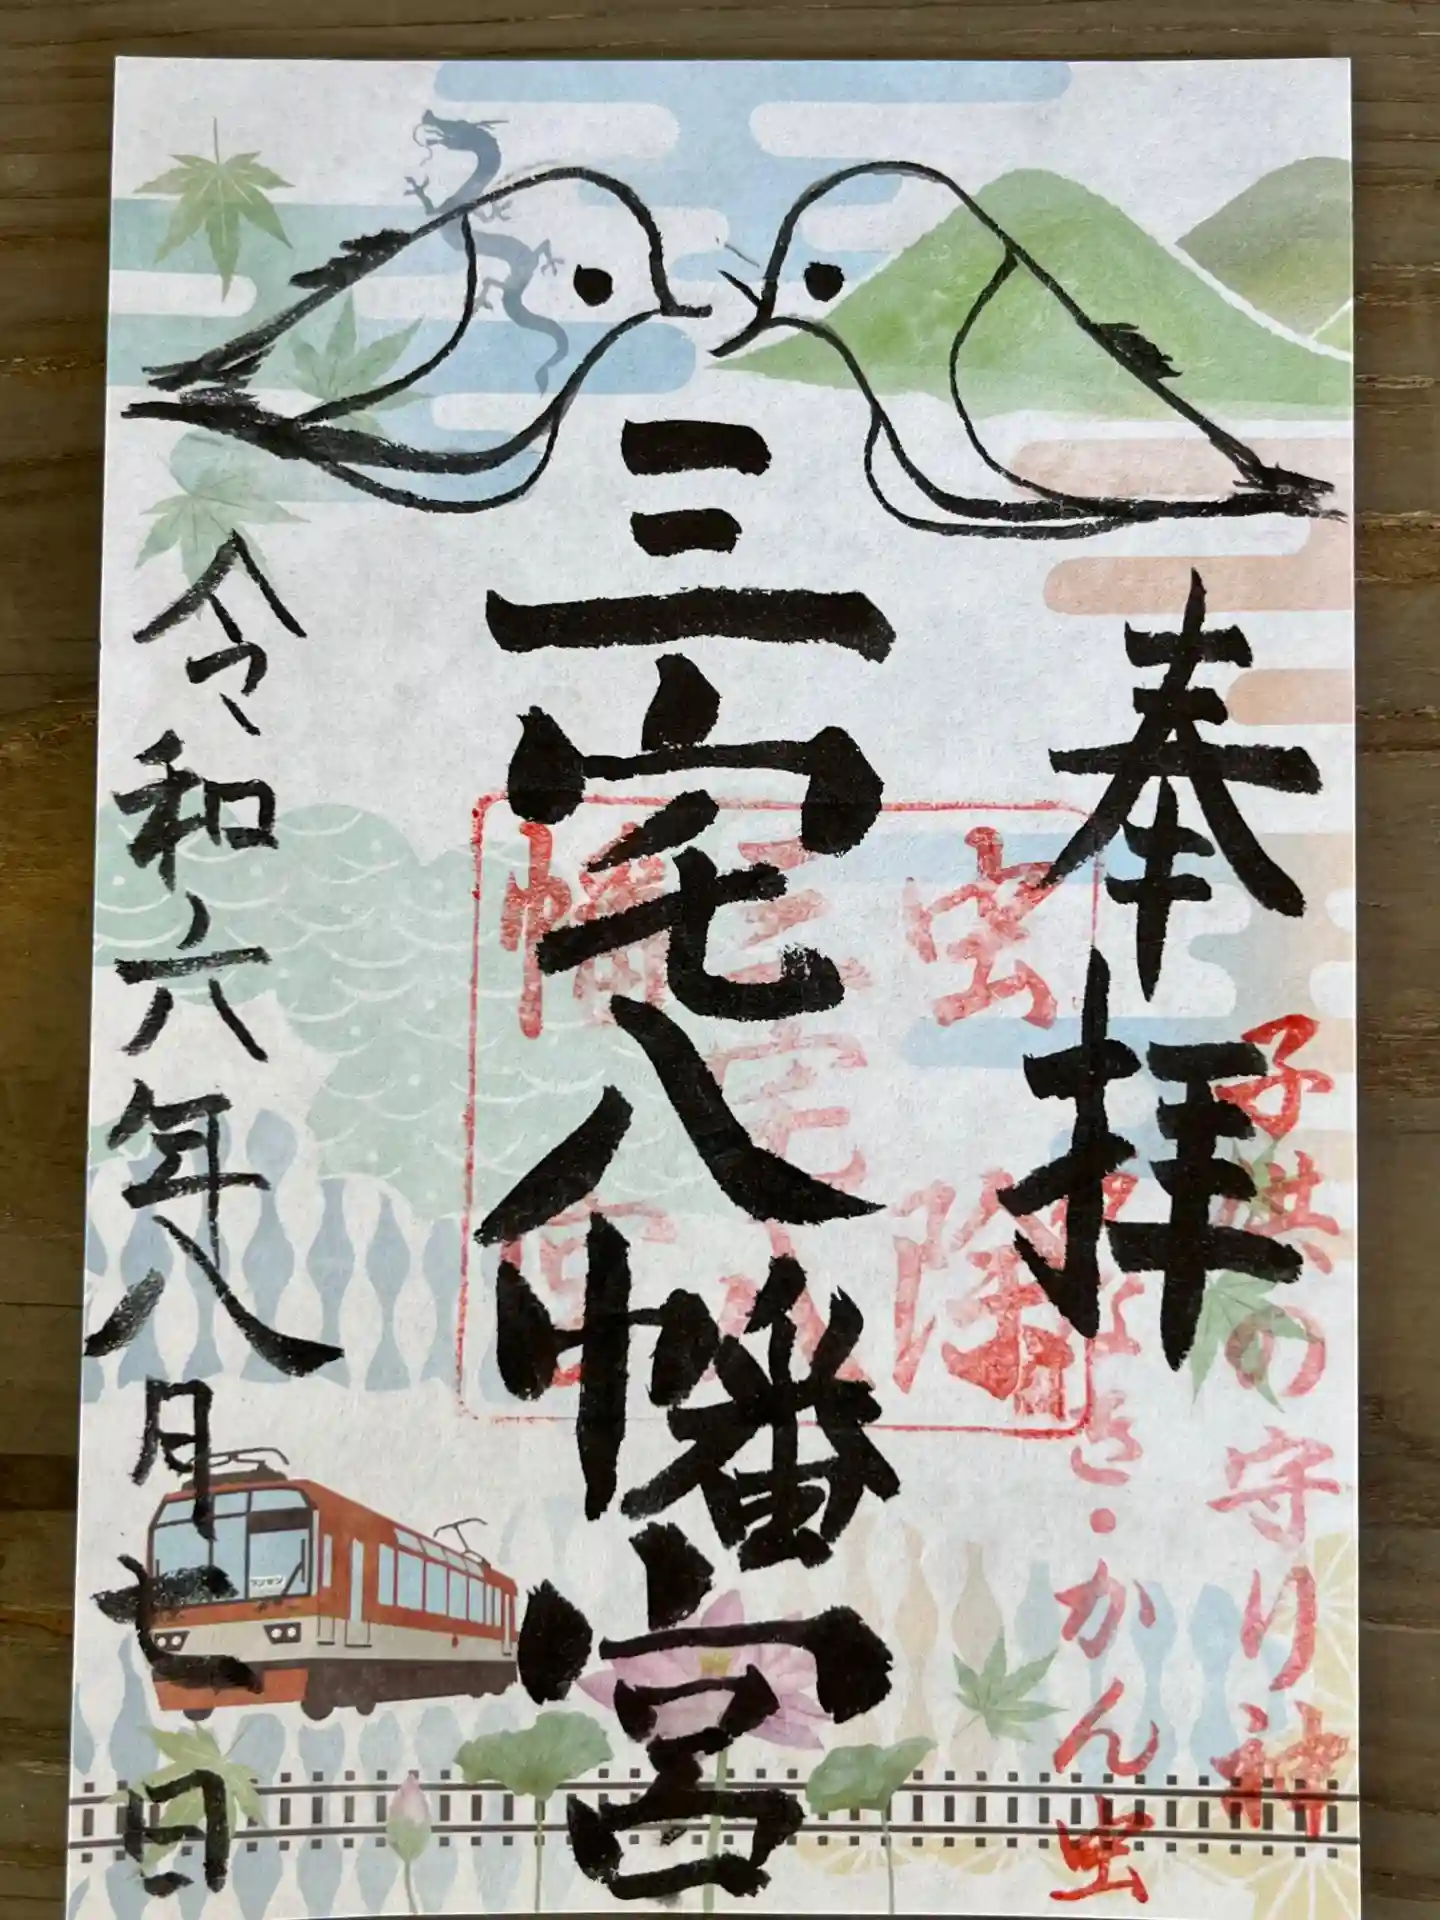 奉拝
子供の守り神
夜なき・かん虫
虫
除
三宅八
幡宮
三宅八幡宮
令和六年八月七日